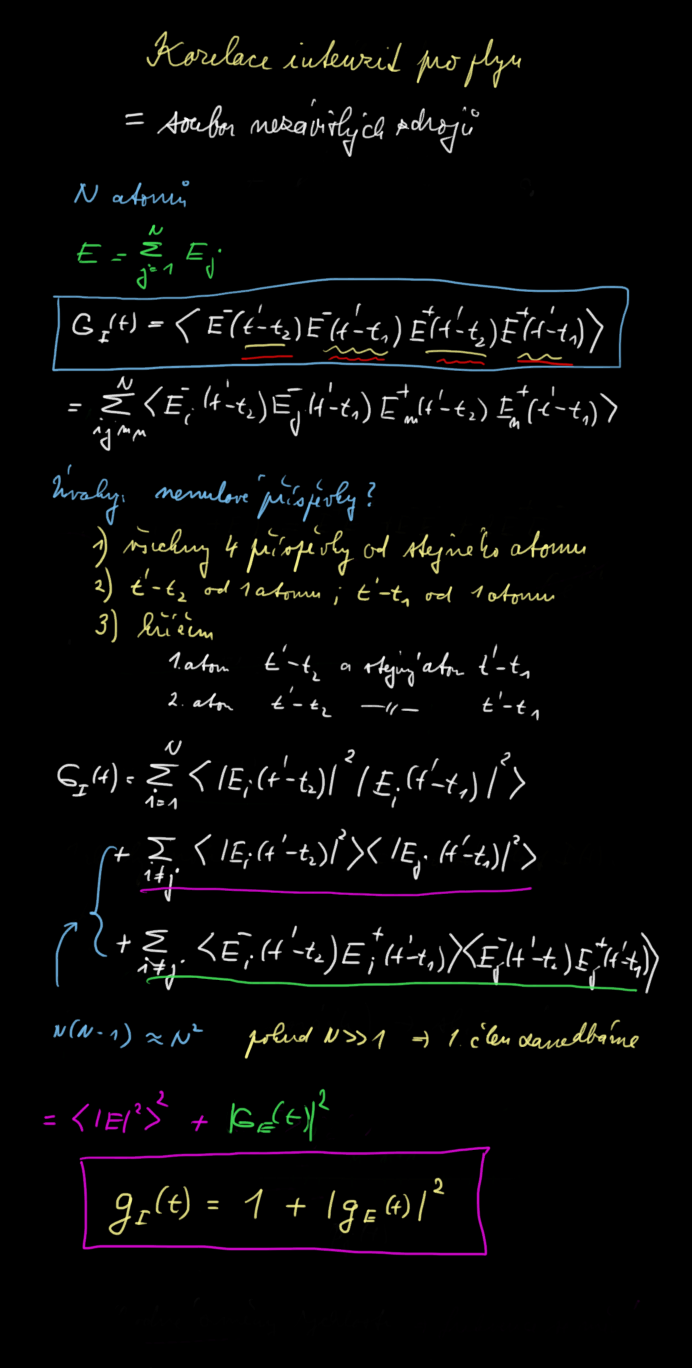 Korelace intenzit pro plyn
= soubor nezávislých zdrojů
N atomů
E = Σ_{j=1}^{N} E_j
G_I(t) = ⟨ E⁻(t'-t₂) E⁻(t'-t₁) E⁺(t'-t₂) E⁺(t'-t₁) ⟩
= Σ_{ijmn}^{N} ⟨ E_i⁻(t'-t₂) E_j⁻(t'-t₁) E_m⁺(t'-t₂) E_n⁺(t'-t₁) ⟩
Úvahy: nenulové příspěvky?
1) všechny 4 příspěvky od stejného atomu
2) t'-t₂ od 1 atomu ; t'-t₁ od 1 atomu
3) křížem
1. atom t'-t₂ a stejný atom t'-t₁
2. atom t'-t₂ —〃— t'-t₁
G_I(t) = Σ_{i=1}^{N} ⟨ |E_i(t'-t₂)|² |E_i(t'-t₁)|² ⟩
+ Σ_{i≠j} ⟨ |E_i(t'-t₂)|² ⟩⟨ |E_j(t'-t₁)|² ⟩
+ Σ_{i≠j} ⟨ E_i⁻(t'-t₂) E_i⁺(t'-t₁) ⟩⟨ E_j⁻(t'-t₂) E_j⁺(t'-t₁) ⟩
N(N-1) ≈ N² pokud N>>1 → 1. člen zanedbáme
= ⟨|E|²⟩² + |G_E(t)|²
g_I(t) = 1 + |g_E(t)|²